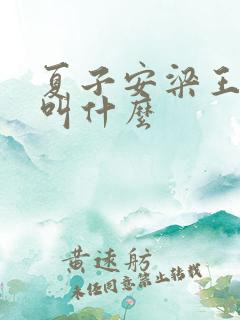 夏子安梁王
叫什麼
黄逑舫
未经同意禁止转载